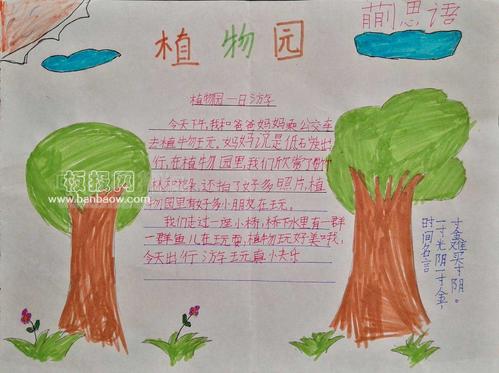 植物园
萠思语
植物园一日游
今天下午,我和爸爸妈妈乘公交车
去植牛勿玩,妈妈说是低石炭出
行,在植牛勿园里,我们欣赏了
林和花朵,还拍了好多照片,植
物园里有好多小朋友在玩。
我们走过一座小桥,桥下水里有一群
一群鱼儿在玩耍,植物玩好美哦,
今天出行游玩真小快乐
时间名言
一寸光阴一寸金,
寸金难买寸光阴。
板报网
www.banbaow.com